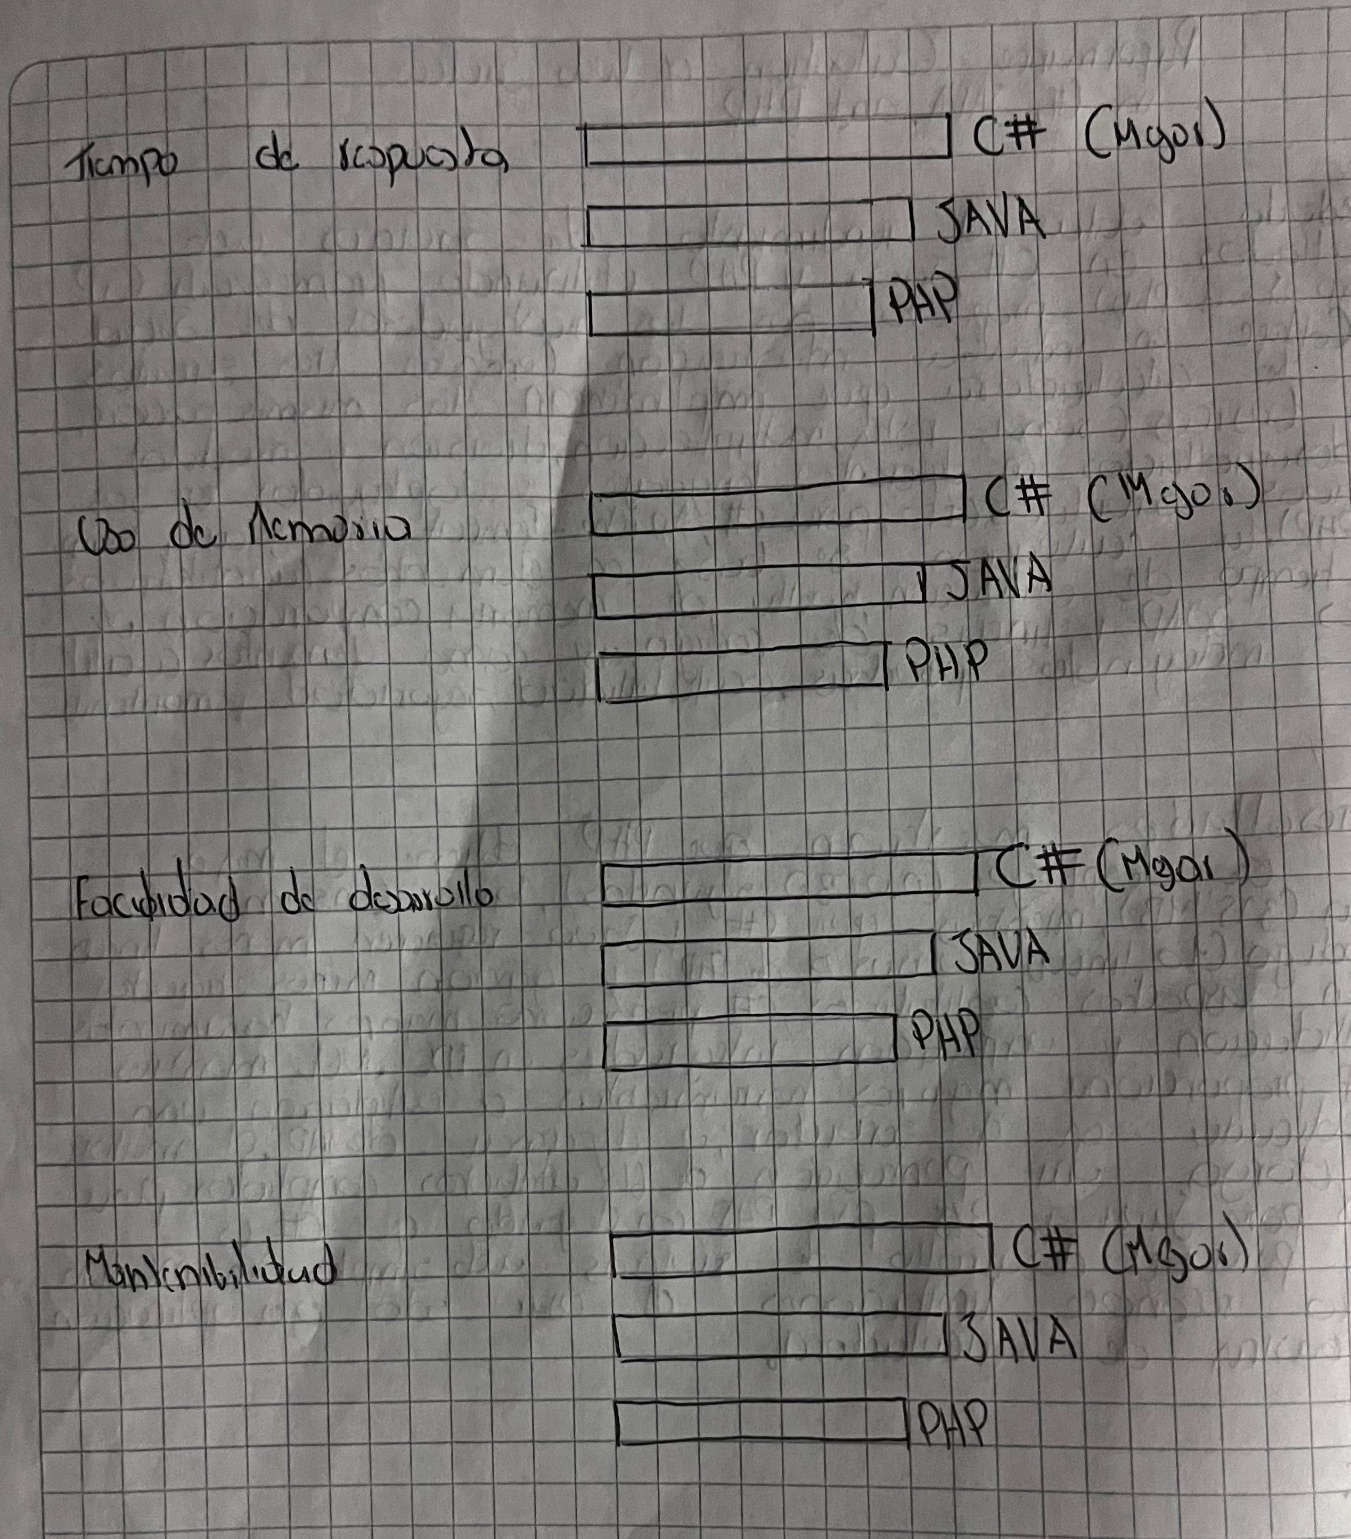 Tiempo de respuesta C# (Mejor)
JAVA
PHP
Uso de Memoria C# (Mejor)
JAVA
PHP
Facilidad de desarrollo C# (Mejor)
JAVA
PHP
Mantenibilidad C# (Mejor)
JAVA
PHP